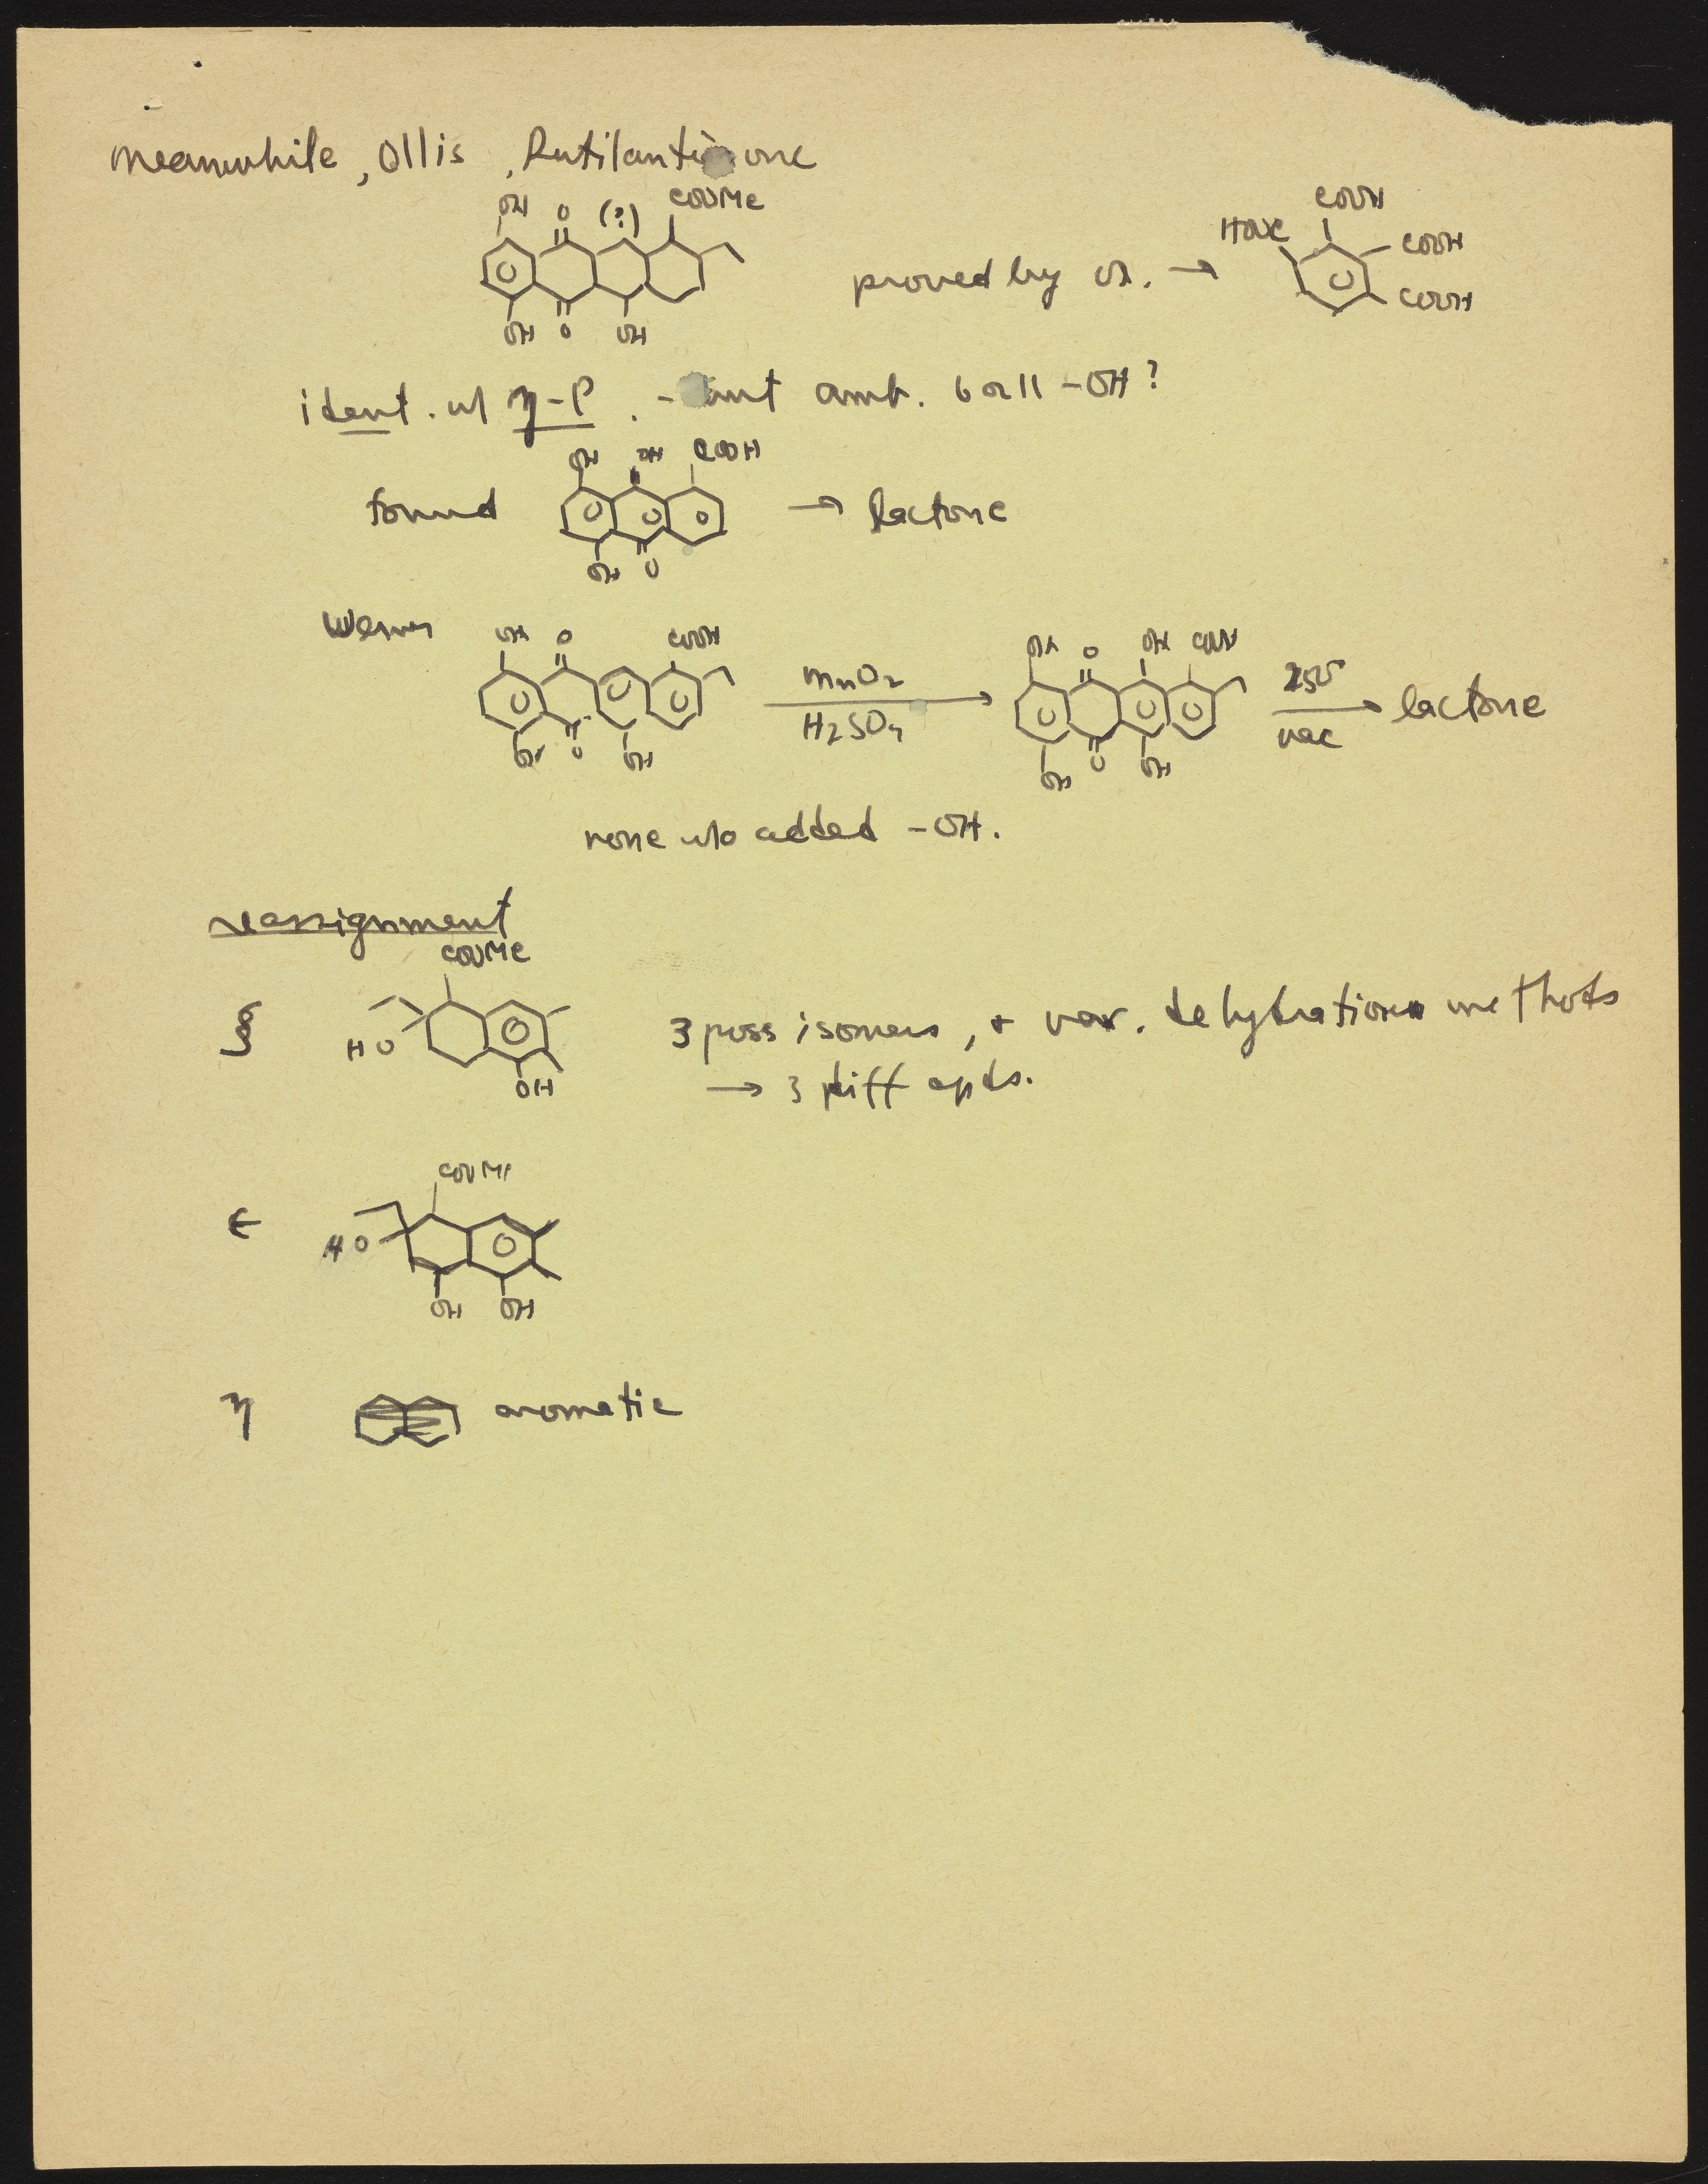 meanwhile, Ollis, Rutilantinone
OH O (?) COOMe
OH O OH
proved by ox. →
COOH
HOOC COOH
COOH
ident. w/ η-P. - but amb. 6 or 11 -OH?
OH OH COOH
found → lactone
OH O
OH O COOH
OH O OH
MnO2
H2SO4
OH O OH COOH
OH O OH
250°
vac
lactone
none w/o added -OH.
reassignment
COOMe
ζ HO
OH
3 poss isomers, + var. dehydration methods
→ 3 diff cpds.
COOMe
ε HO
OH OH
η aromatic